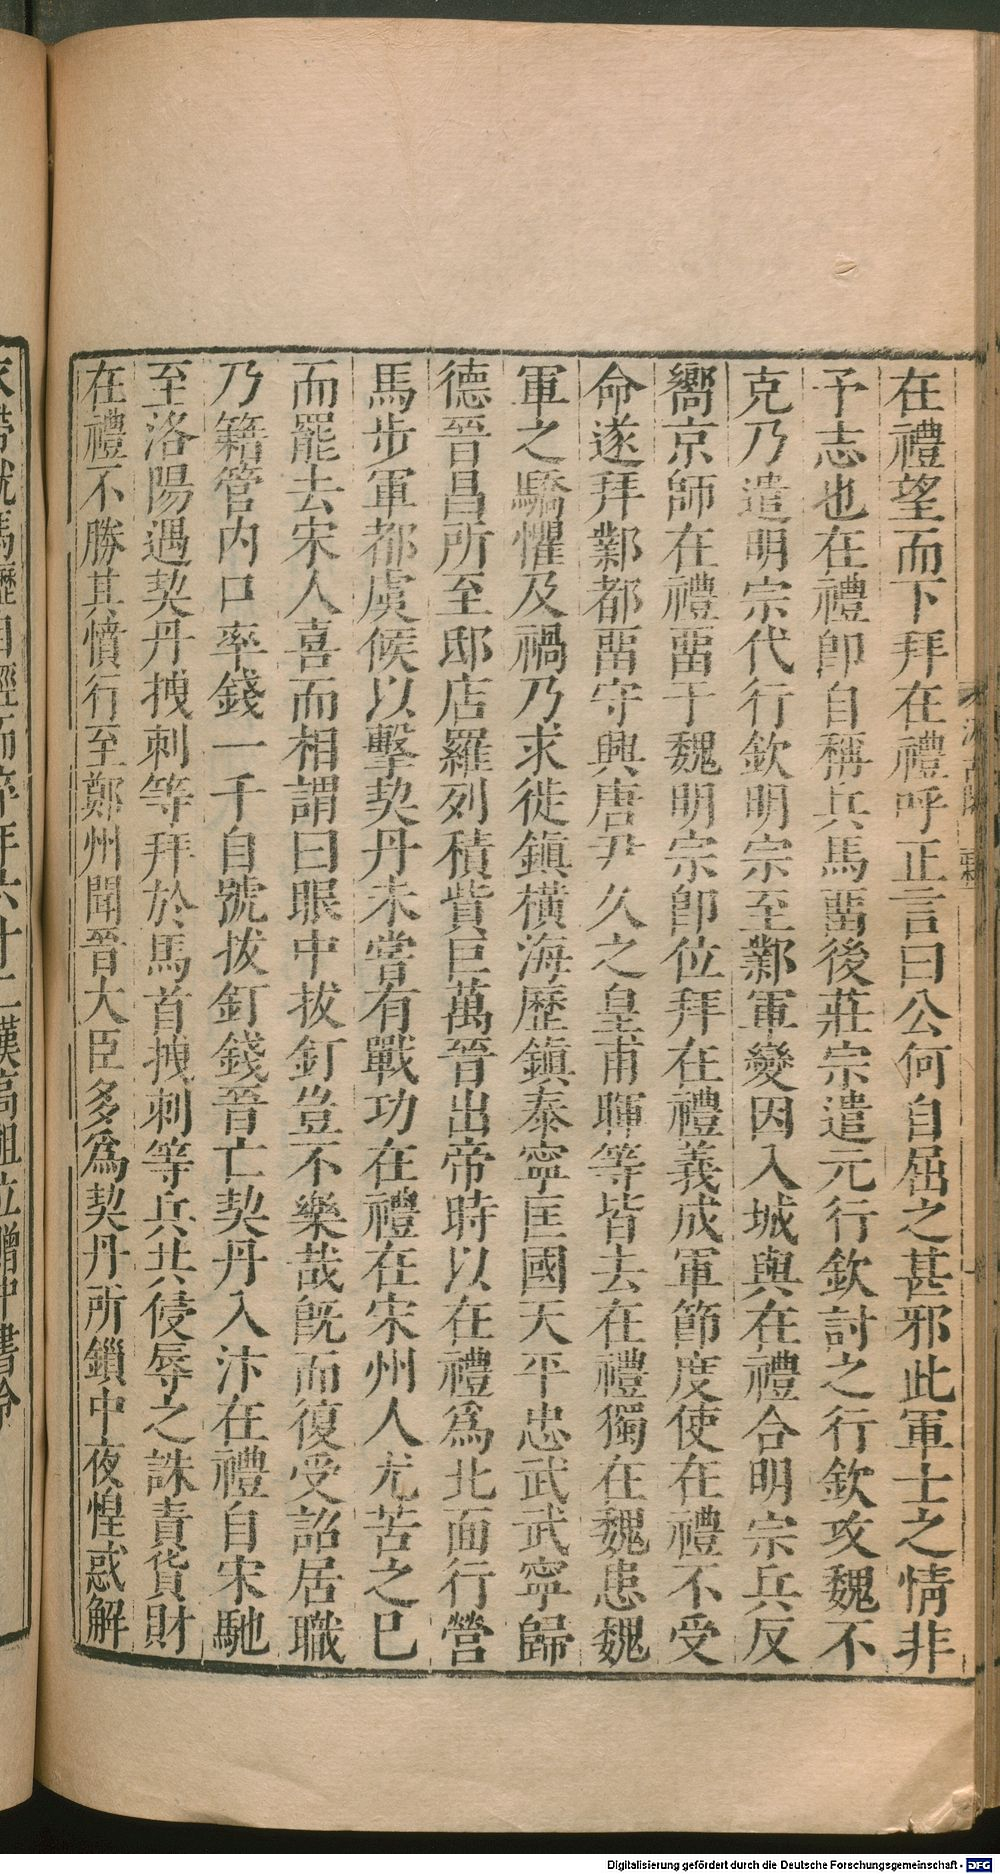 在禮望而下拜在禮呼正言曰公何自屈之甚邪此軍士之情非
予志也在禮卽自稱兵馬畱後莊宗遣元行欽討之行欽攻魏不
克乃遣明宗代行欽明宗至鄴軍變因入城與在禮合明宗兵反
嚮京師在禮畱于魏明宗卽位拜在禮義成軍節度使在禮不受
命遂拜鄴都畱守興唐尹久之皇甫暉等皆去在禮獨在魏患魏
軍之驕懼及禍乃求徙鎭橫海歷鎭泰寧匡國天平忠武武寧歸
德晉昌所至邸店羅列積貲巨萬晉出帝時以在禮爲北面行營
馬步軍都虞候以擊契丹未嘗有戰功在禮在宋州人尤苦之已
而罷去宋人喜而相謂曰眼中拔釘豈不樂哉旣而復受詔居職
乃籍管內口率錢一千自號拔釘錢晉亡契丹入汴在禮自宋馳
至洛陽遇契丹拽刺等拜於馬首拽刺等兵共侵辱之誅責貨財
在禮不勝其憤行至鄭州聞晉大臣多爲契丹所鎻中夜惶惑解
衣帶就馬櫪自經而卒年六十二漢高祖立贈中書令
Digitalisierung gefördert durch die Deutsche Forschungsgemeinschaft - DFG